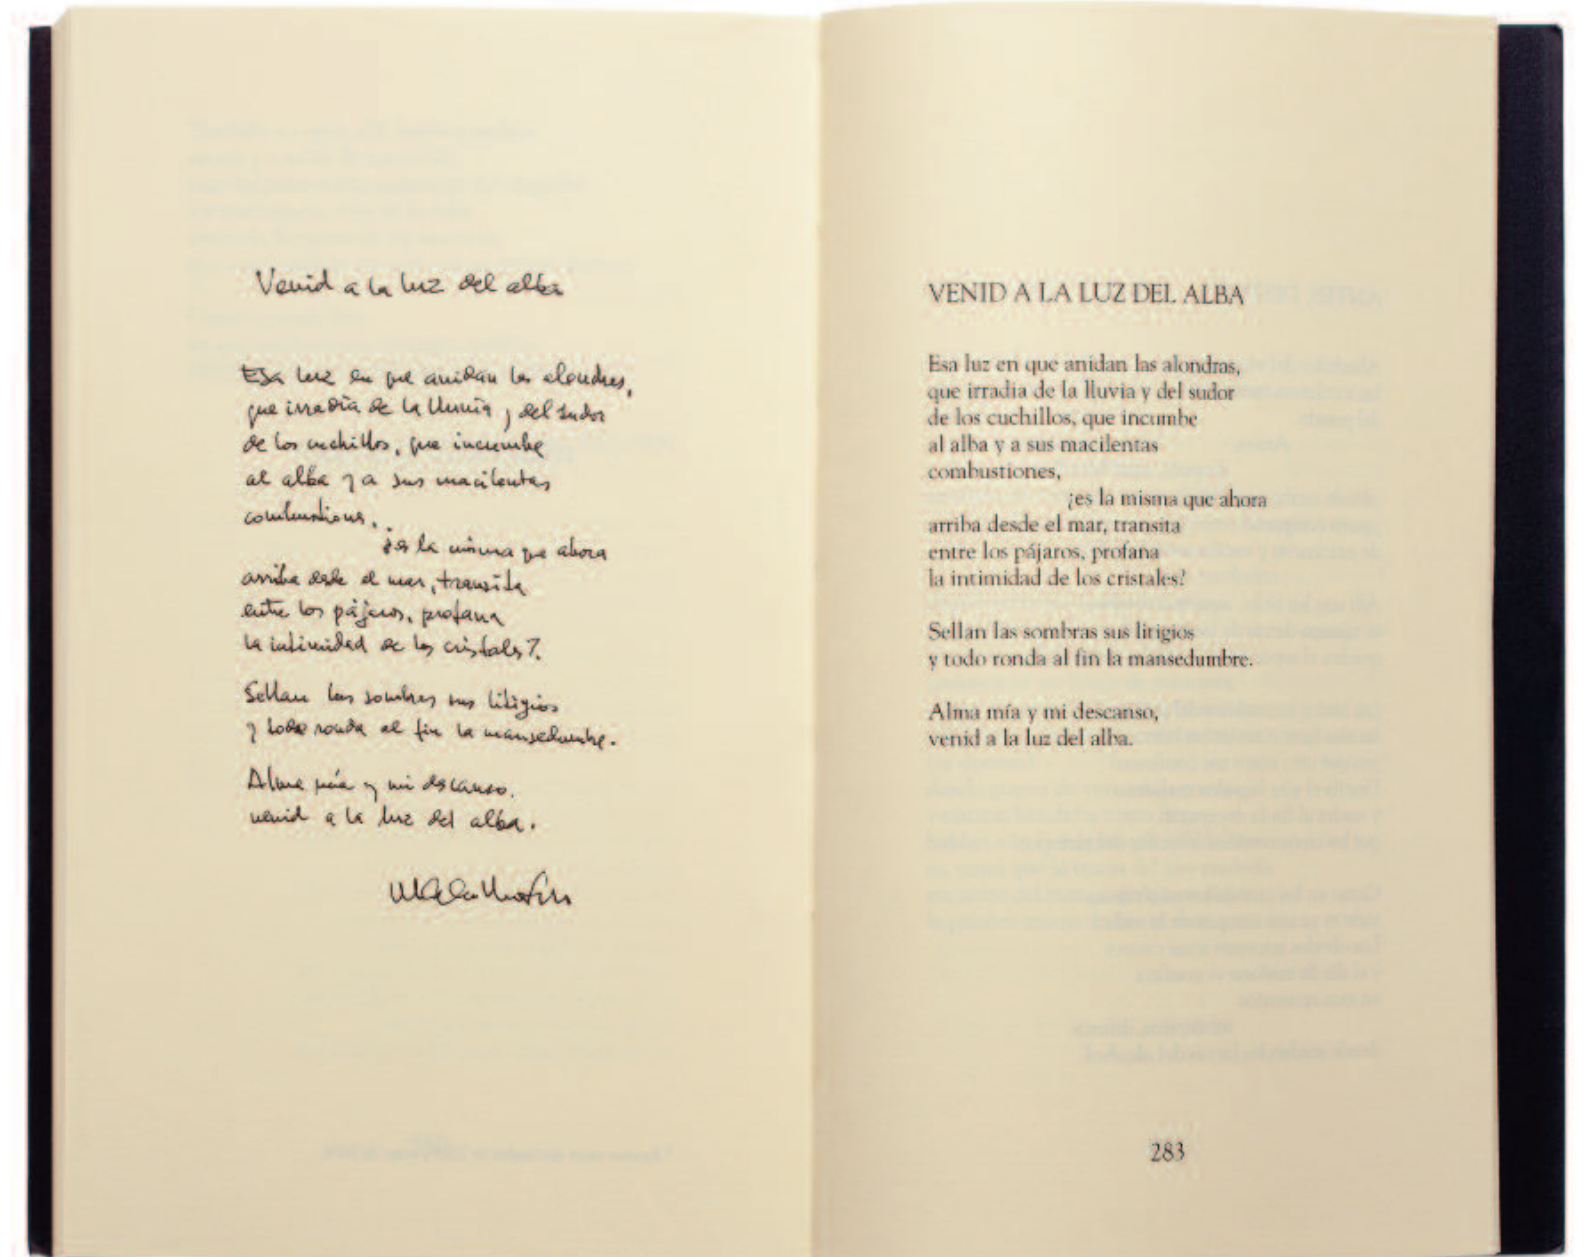 Venid a la luz del alba
Esa luz en que anidan las alondras,
que irradia de la lluvia y del sudor
de los cuchillos, que incumbe
al alba y a sus macilentas
combustiones,
¿es la misma que ahora
arriba desde el mar, transita
entre los pájaros, profana
la intimidad de los cristales?.
Sellan las sombras sus litigios
y todo ronda al fin la mansedumbre.
Alma mía y mi descanso,
venid a la luz del alba.
VENID A LA LUZ DEL ALBA
Esa luz en que anidan las alondras,
que irradia de la lluvia y del sudor
de los cuchillos, que incumbe
al alba y a sus macilentas
combustiones,
¿es la misma que ahora
arriba desde el mar, transita
entre los pájaros, profana
la intimidad de los cristales?
Sellan las sombras sus litigios
y todo ronda al fin la mansedumbre.
Alma mía y mi descanso,
venid a la luz del alba.
283